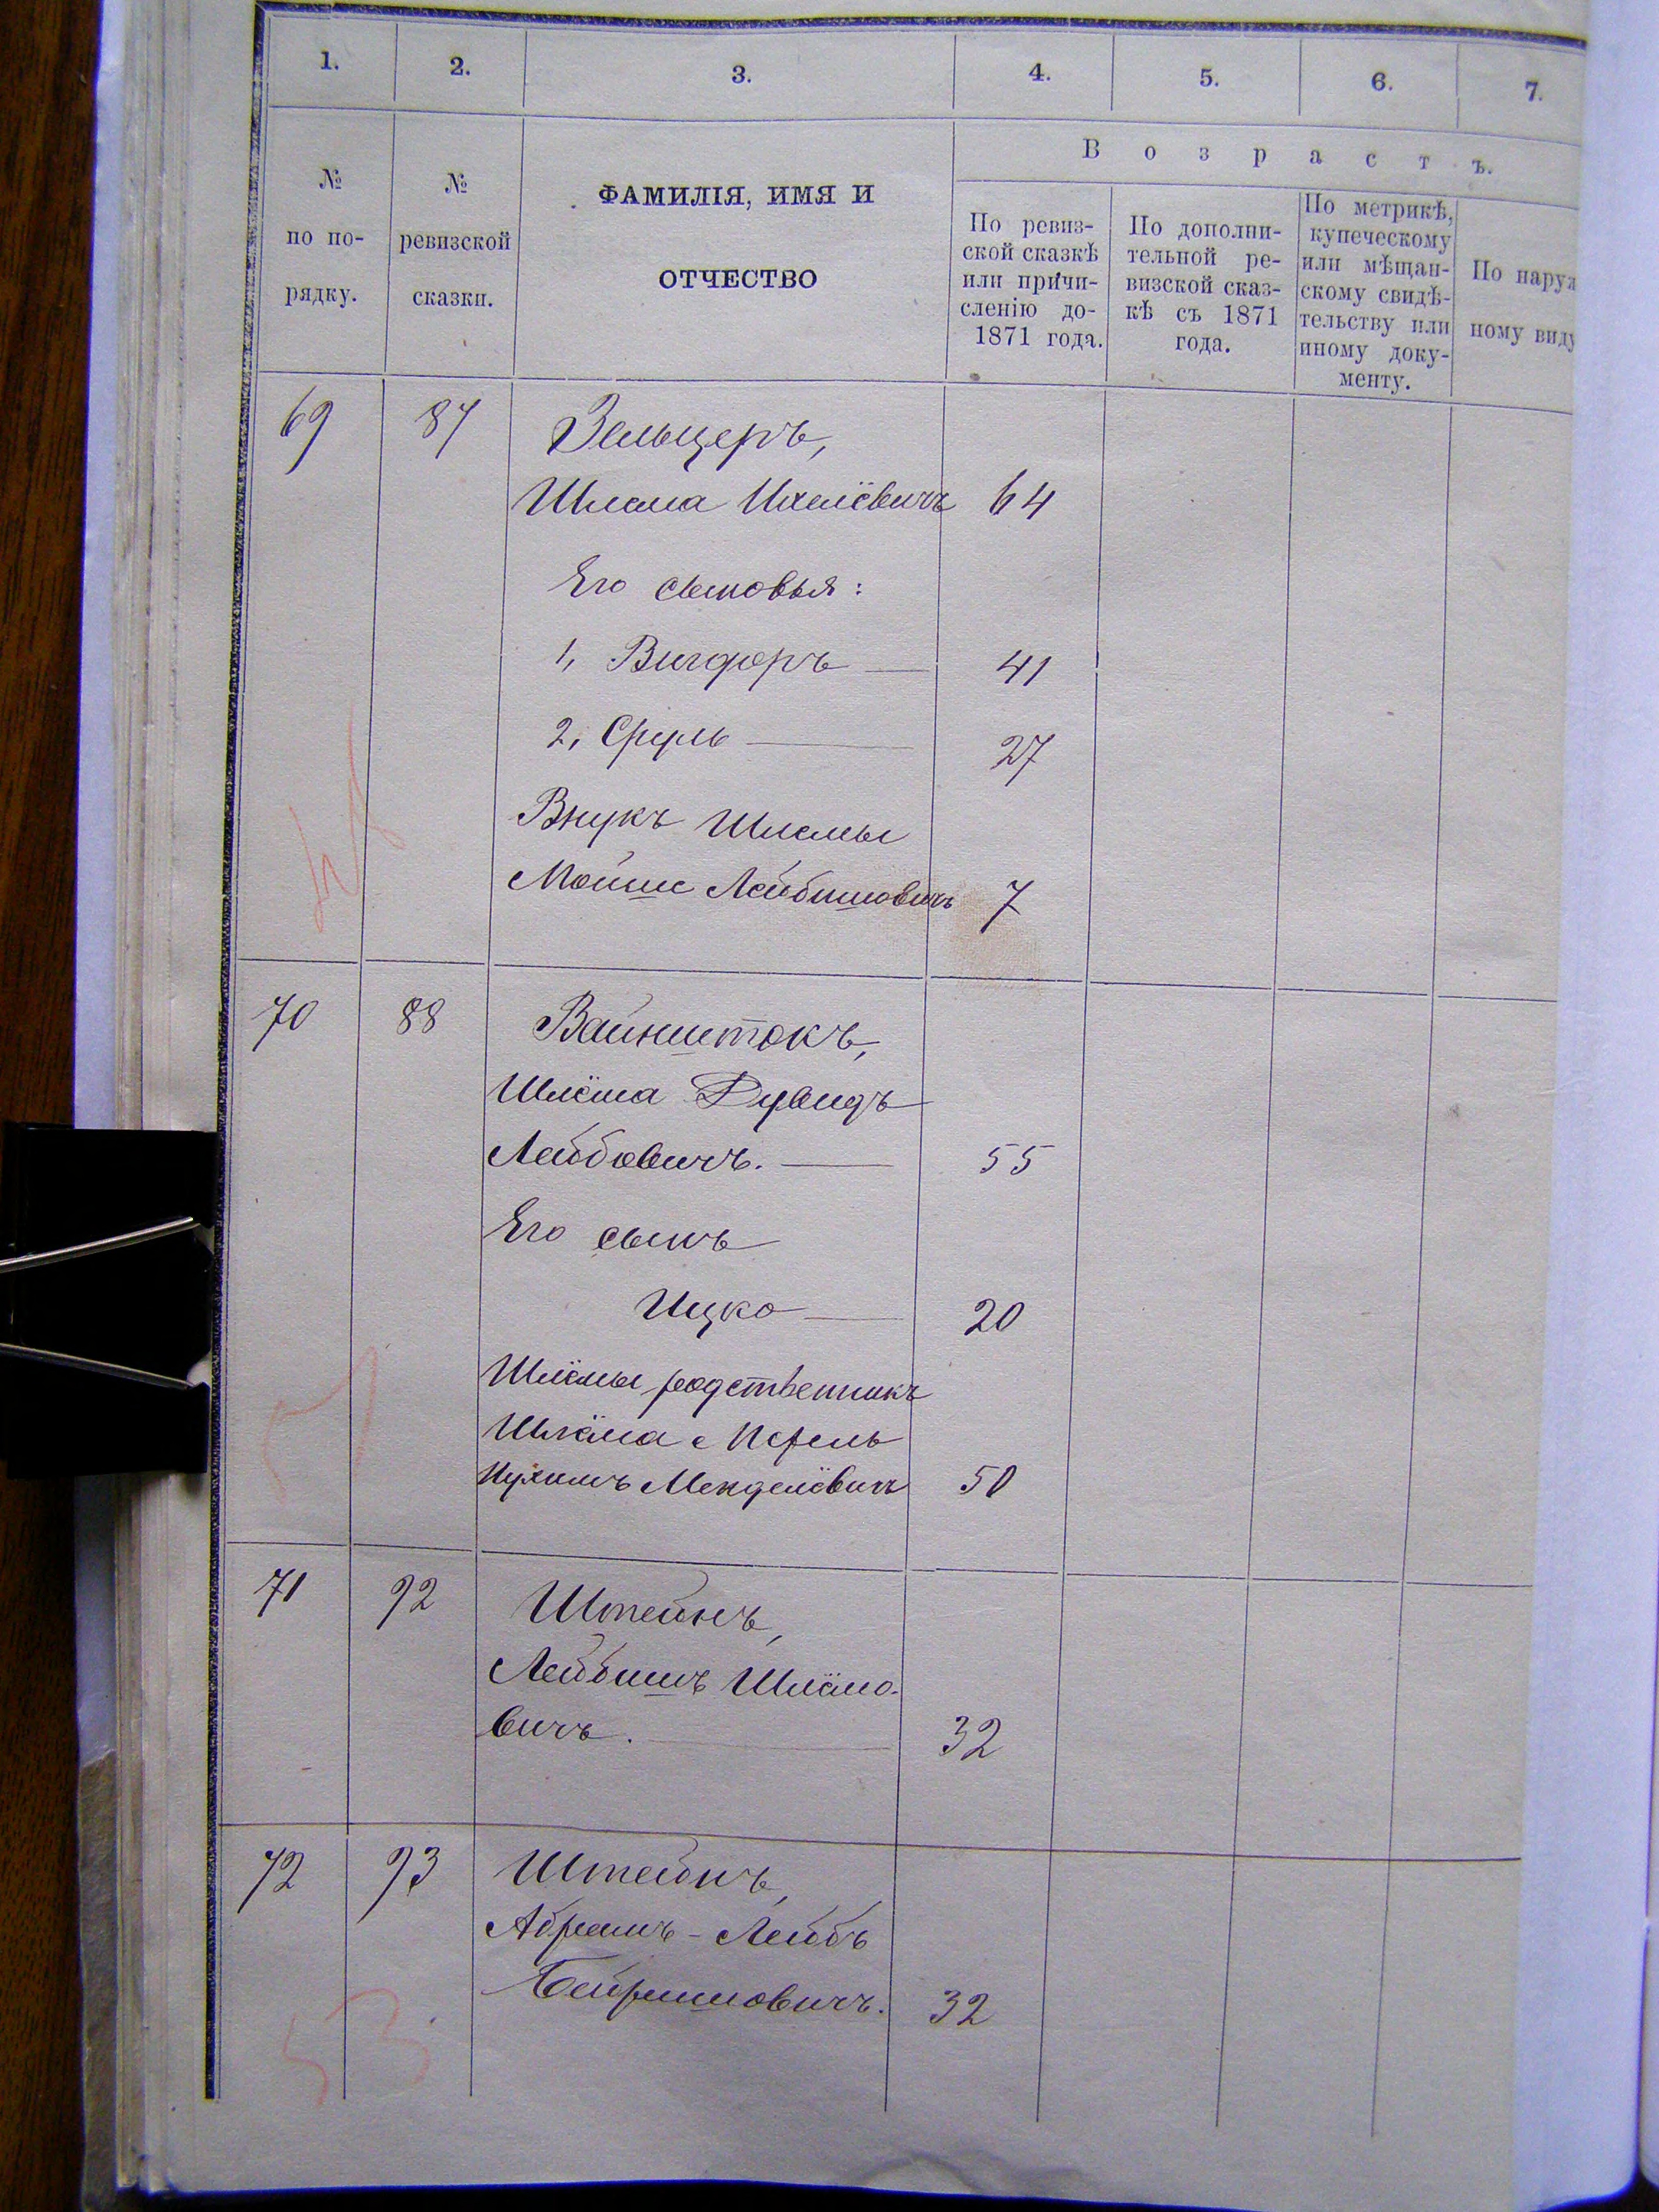 1. 2. 3. 4. 5. 6. 7.
В о з р а с т ъ.
№
по по-
рядку.
№
ревизской
сказки.
ФАМИЛІЯ, ИМЯ И
ОТЧЕСТВО
По ревиз-
ской сказкѣ
или причи-
сленію до-
1871 года.
По дополни-
тельной ре-
визской сказ-
кѣ съ 1871
года.
По метрикѣ,
купеческому
или мѣщан-
скому свидѣ-
тельству или
иному доку-
менту.
По наруж
ному виду
69 87 Зельцеръ,
Шлема Ихелёвичъ 64
Его сыновья:
1, Вигдоръ 41
2, Сруль 27
Внукъ Шлемы
Мойше Лейбишовичъ 7
70 88 Вайнштокъ,
Шлёма Дувидъ
Лейбовичъ. 55
Его сынъ
Ицко 20
Шлёмы родственникъ
Шлёма
Менделёвичъ 50
71 92 Штейнъ,
Лейбишъ Шлёмо-
вичъ. 32
72 93 Штейнъ,
Абрамъ-Лейбъ
Бейришовичъ. 32
53